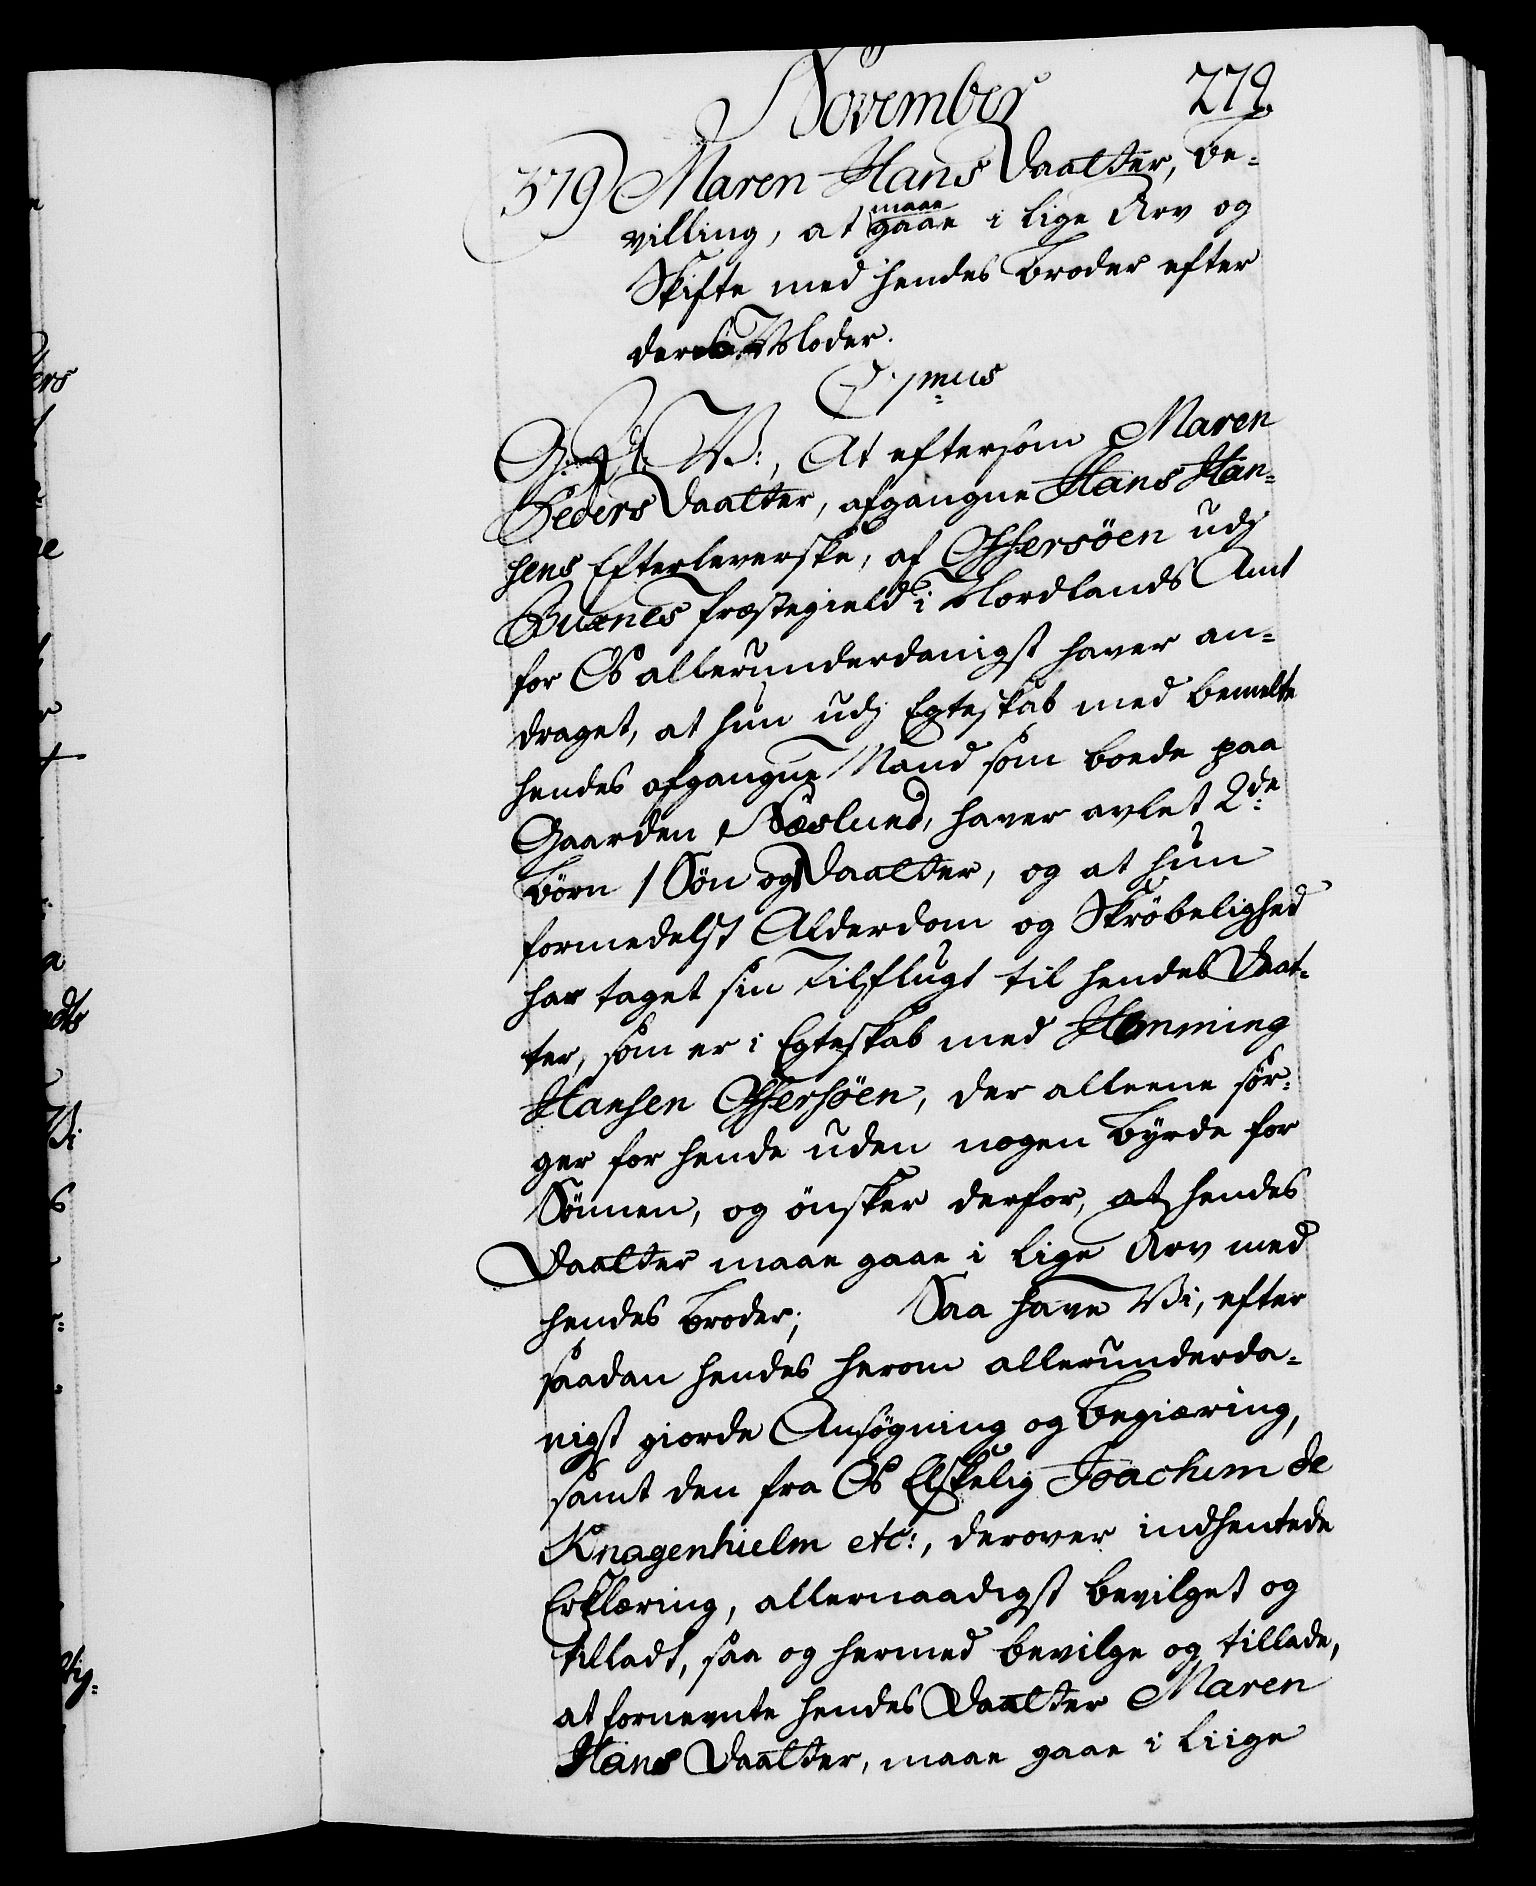 November
279.
379) Maren Hans Daatter, Be-
villing, at maae gaae i lige Arv og
Skifte med hendes Broder efter
deres Moder.
C: 7mus
G: A: V:, At eftersom Maren
Peders Daatter, afgangne Hans Han-
sens Efterleverske, af Offersöen udj
Buxnes Præstegield i Nordlands Amt
for Os allerunderdanigst haver an-
draget, at hun udj Egteskab med bemelte
hendes afgangne Mand som boede paa
Gaarden Næslund, haver avlet 2de
Börn 1 Sön og 1 Daatter, og at hun
formedelst Alderdom og Skröbelighed
har taget sin Tilflugt til hendes Daat-
ter, som er i Egteskab med Henning
Hansen Offersöen, der alleene sör-
ger for hende uden nogen Byrde for
Sönnen, og önsker derfor, at hendes
Daatter maae gaae i lige Arv med
hendes Broder; Saa have Vi, efter
saadan hendes herom allerunderda-
nigst giorde Ansögning og Begiæring,
samt den fra Os Elskelig Joachim de
Knagenhielm etc:, derover indhentede
Erklæring, allernaadigst bevilget og
tilladt, saa og hermed bevilge og tillade,
at fornevnte hendes Daatter Maren
Hans Daatter, maae gaae i liige